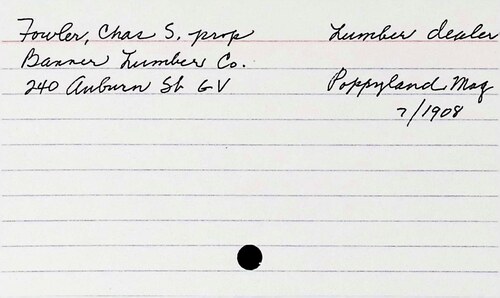 Fowler, Chas S. prop Lumber dealer
Banner Lumber Co.
240 Auburn St GV Poppyland Mag
7/1908